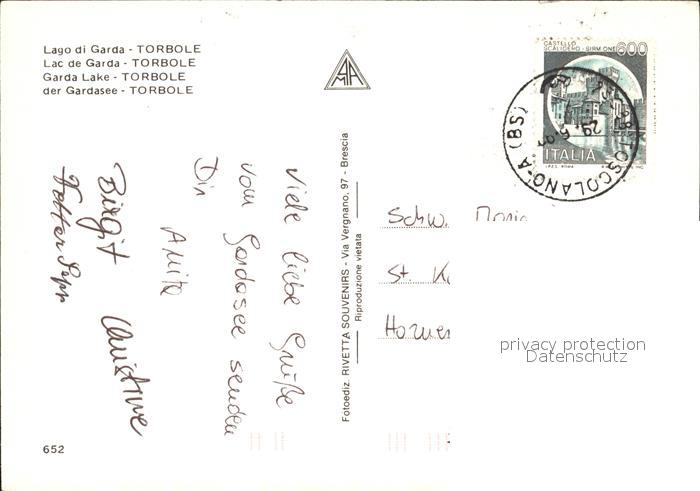 Lago di Garda - TORBOLE
Lac de Garda - TORBOLE
Garda Lake - TORBOLE
der Gardasee - TORBOLE
CASTELLO
SCALIGERO - SIRMIONE 600
ITALIA
I.P.Z.S. ROMA
TOSCOLANO-A (BS)
29.5.
Viele liebe Grüße
vom Gardasee senden
Dir
Anita
Christine
Birgit
Vetter Sepp
Fotoediz. RIVETTA SOUVENIRS - Via Vergnano, 97 - Brescia
Riproduzione vietata
Schw. Maria
St.
privacy protection
Datenschutz
652